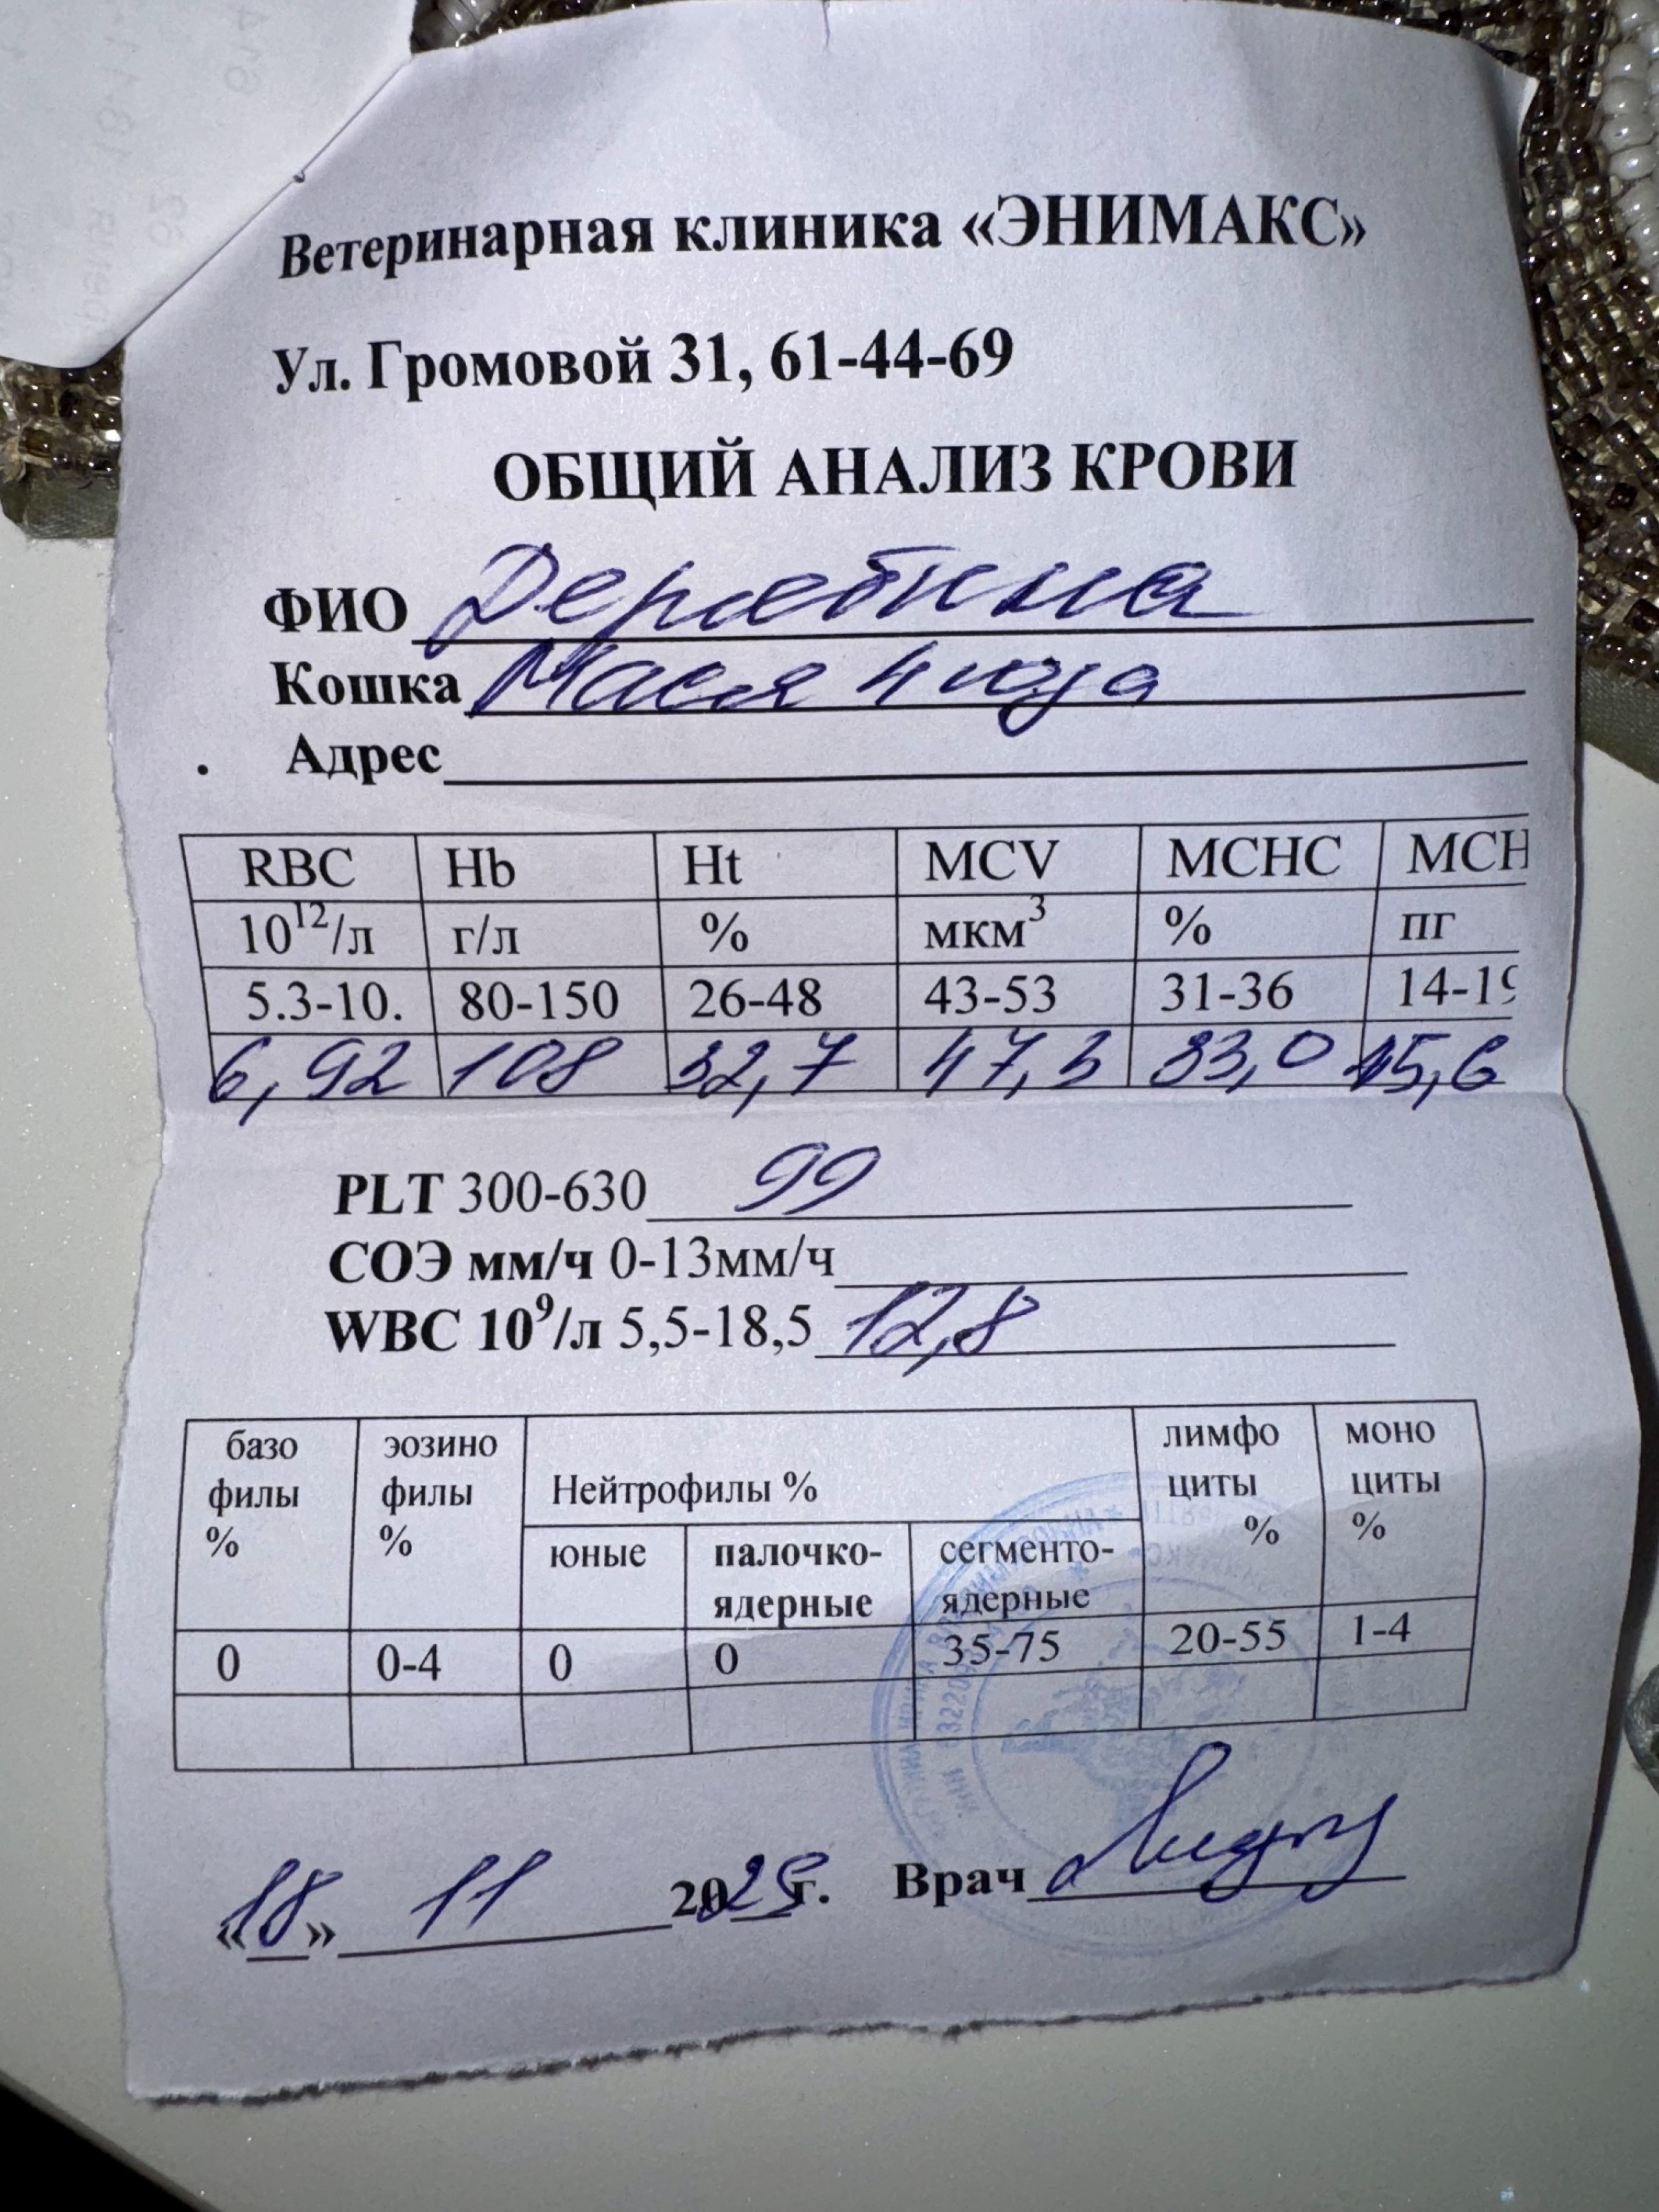 Ветеринарная клиника «ЭНИМАКС»
Ул. Громовой 31, 61-44-69
ОБЩИЙ АНАЛИЗ КРОВИ
ФИО Дерябина
Кошка Мася 4 года
Адрес
RBC Hb Ht MCV MCHC MCH
10¹²/л г/л % мкм³ % пг
5.3-10. 80-150 26-48 43-53 31-36 14-19
6,92 108 32,7 47,3 33,0 15,6
PLT 300-630 99
СОЭ мм/ч 0-13мм/ч
WBC 10⁹/л 5,5-18,5 12,8
базо филы % эозино филы % Нейтрофилы % лимфо циты % моно циты %
юные палочко-ядерные сегменто-ядерные
0 0-4 0 0 35-75 20-55 1-4
«18» 11 2025г. Врач